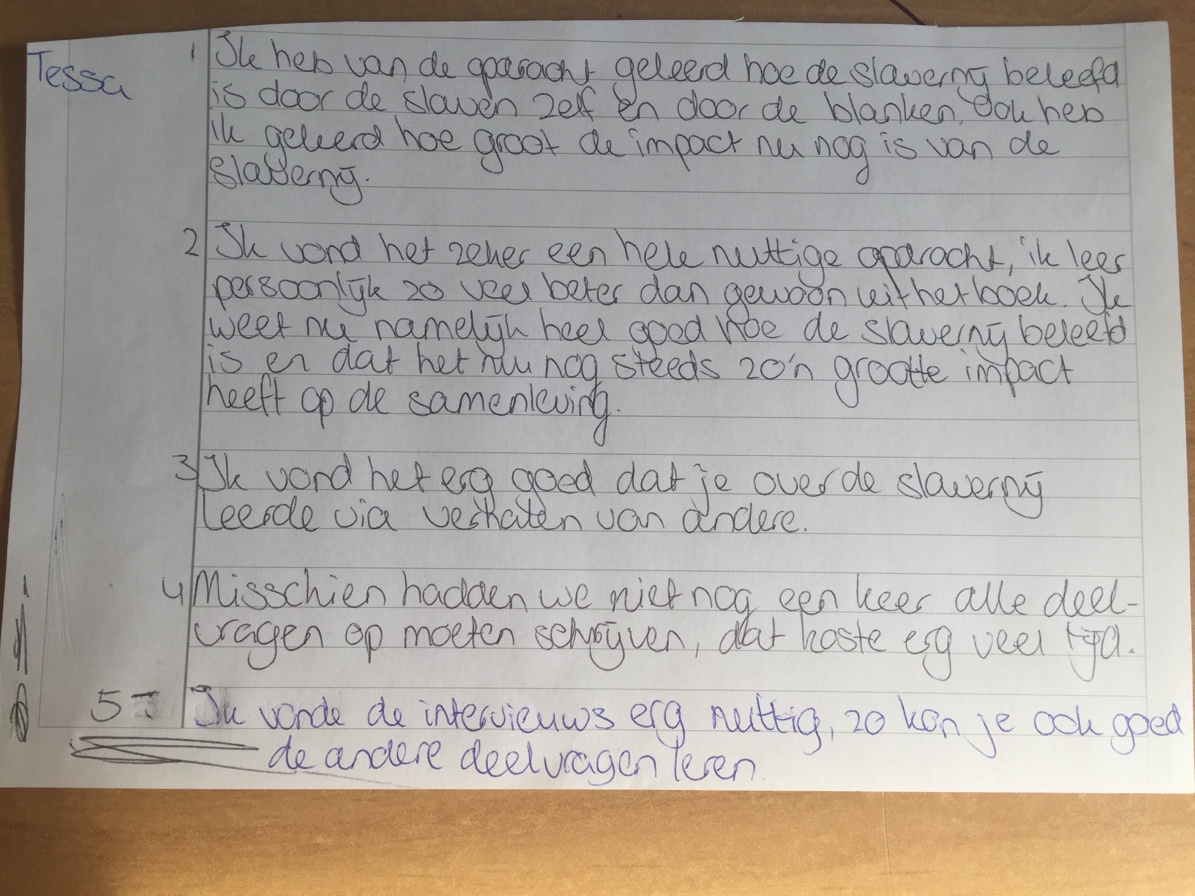 Tessa
1 Ik heb van de opdracht geleerd hoe de slavernij beleefd
is door de slaven zelf en door de blanken. Ook heb
ik geleerd hoe groot de impact nu nog is van de
slavernij.
2 Ik vond het zeker een hele nuttige opdracht, ik leer
persoonlijk zo veel beter dan gewoon uit het boek. Ik
weet nu namelijk heel goed hoe de slavernij beleefd
is en dat het nu nog steeds zo'n grootte impact
heeft op de samenleving.
3 Ik vond het erg goed dat je over de slavernij
leerde via verhalen van andere.
4 Misschien hadden we niet nog een keer alle deel-
vragen op moeten schrijven, dat koste erg veel tijd.
5 Ik vonde de interviews erg nuttig, zo kon je ook goed
de andere deelvragen leren.